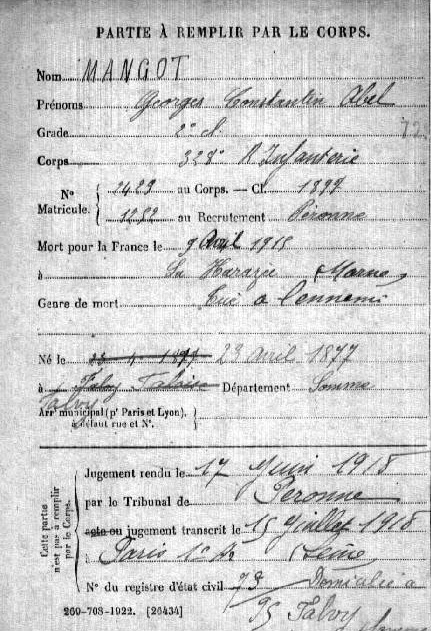 PARTIE À REMPLIR PAR LE CORPS.
Nom MANGOT
Prénoms Georges Constantin Abel
Grade 2e cl.
Corps 328e R Infanterie
No Matricule. { 2429 au Corps. — Cl. 1897
1282 au Recrutement Péronne
Mort pour la France le 9 Avril 1915
à La Harazée Marne
Genre de mort Tué à l'ennemi
Né le 23 4 1877 23 avril 1877
à Falvy Département Somme
Falvy
Arrt municipal (pr Paris et Lyon),
à défaut rue et No.
Cette partie
n'est pas à remplir
par le Corps.
Jugement rendu le 17 Juin 1918
par le Tribunal de Péronne
acte ou jugement transcrit le 15 Juillet 1918
à Paris 1e Seine
No du registre d'état civil 78 Domicilié à
95 Falvy Somme
260-708-1922. [26434]